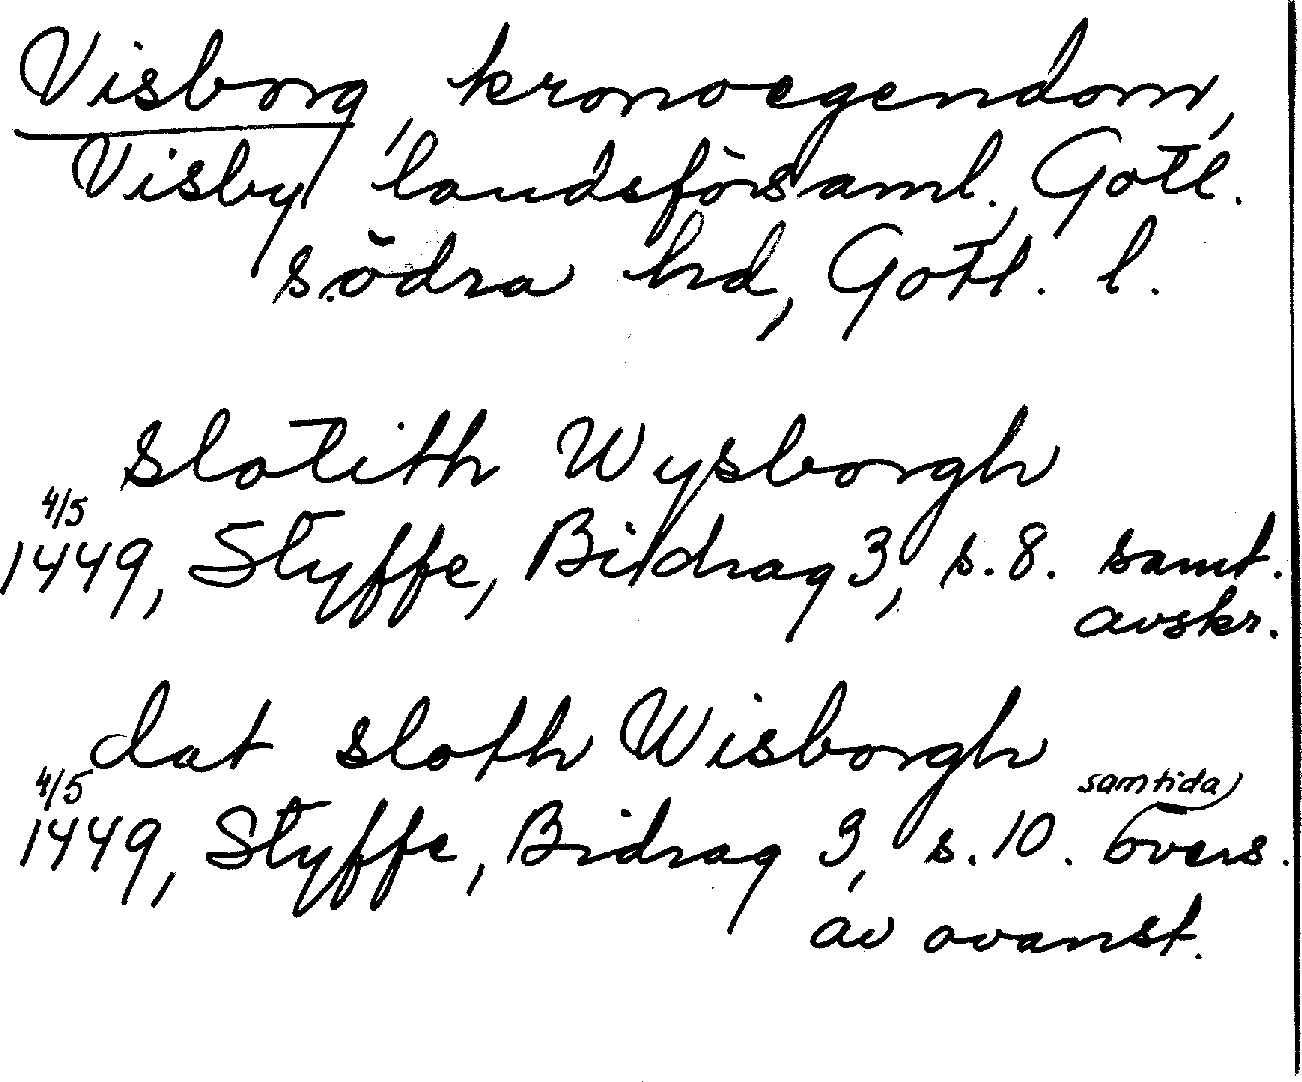 Visborg, kronoegendom,
Visby landsförsaml., Gotl.
södra hd, Gotl. l.
slotith Wysborgh
4/5
1449, Styffe, Bidrag 3, s. 8. samt.
avskr.
dat sloth Wisborgh
4/5 samtida
1449, Styffe, Bidrag 3, s. 10. övers.
av ovanst.